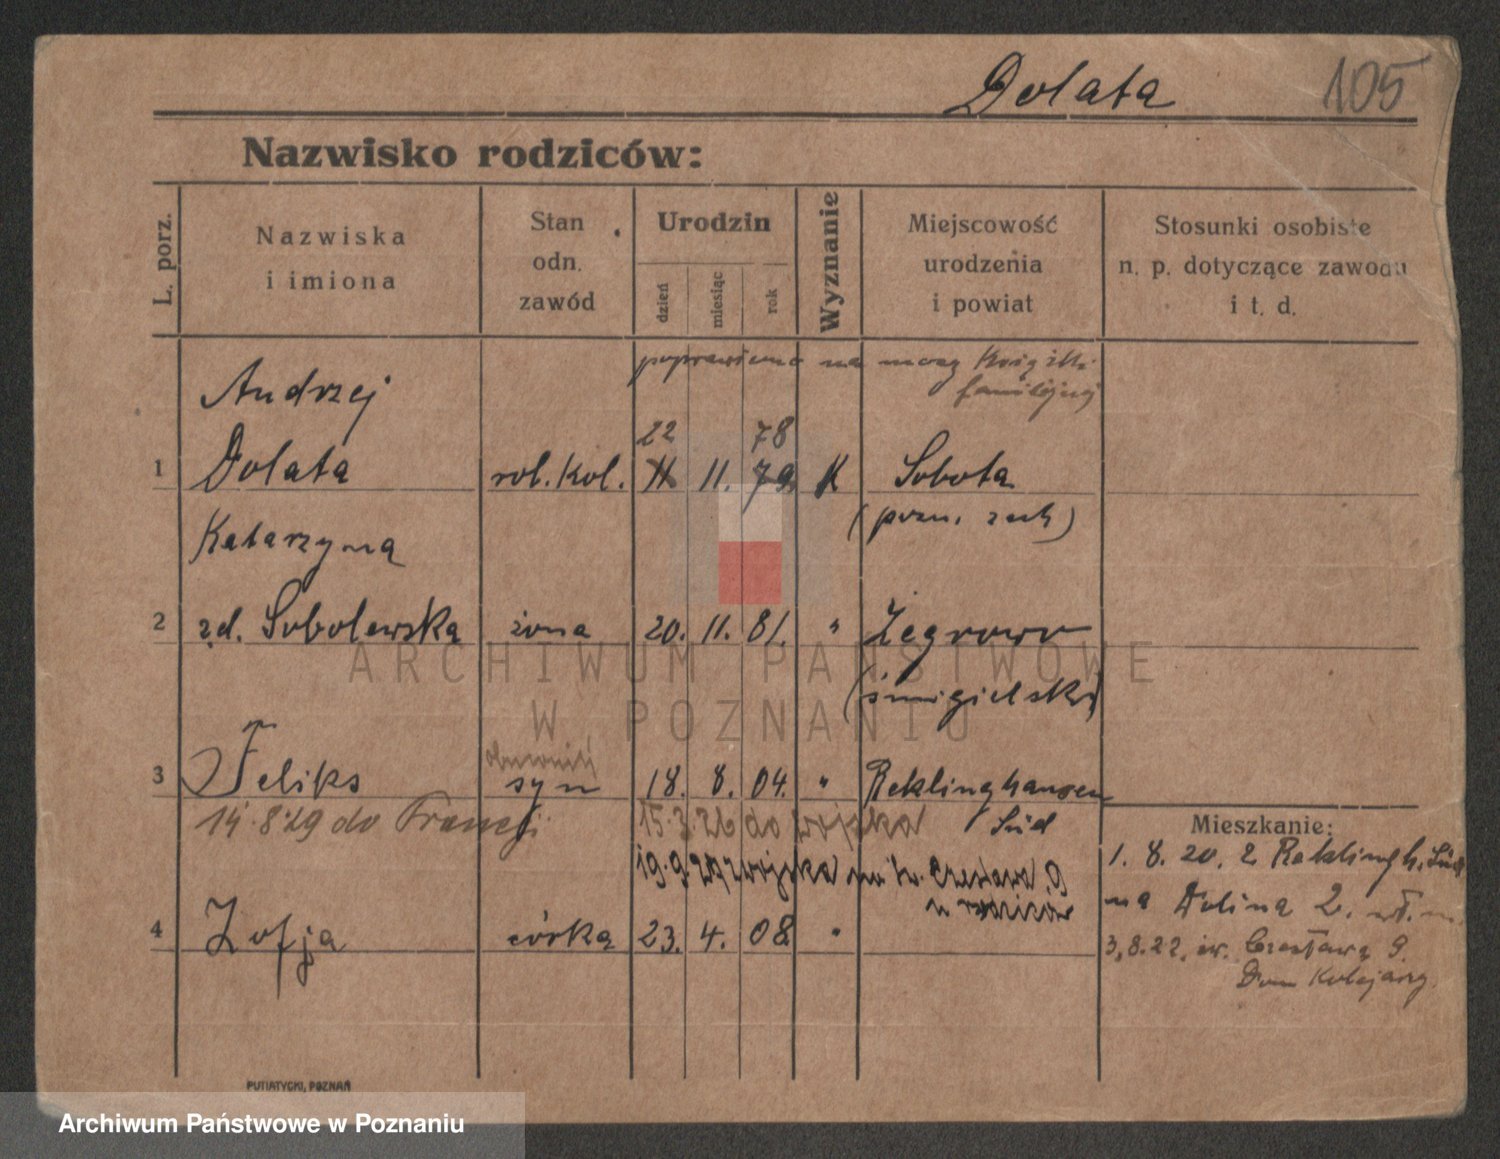 Dolata 105
Nazwisko rodziców:
L. porz.
Nazwiska
i imiona
Stan
odn.
zawód
Urodzin
dzień
miesiąc
rok
Wyznanie
Miejscowość
urodzenia
i powiat
Stosunki osobiste
n. p. dotyczące zawodu
i t. d.
poprawiono na mocy
familijnej
Andrzej
22 78
1 Dolata rob. kol. 11 11. 79 K Sobota
(pozn. zach)
Katarzyna
2 zd. Sobolewska żona 20. 11. 81. " Żegrowo
(śmigielski)
3 Feliks syn 18. 8. 04. " Reklinghausen
Süd
14.8.29 do Francji 15.3.26 do wojska
19.9.27 z wojska na św. Czesława 9
u rodziców
4 Zofja córka 23. 4. 08 "
Mieszkanie:
1. 8. 20. z Reklingh. Süd
na Dolina 2.
3.8.22. św. Czesława 9.
Dom Kolejarzy
PUTIATYCKI, POZNAŃ
ARCHIWUM PAŃSTWOWE
W POZNANIU
Archiwum Państwowe w Poznaniu